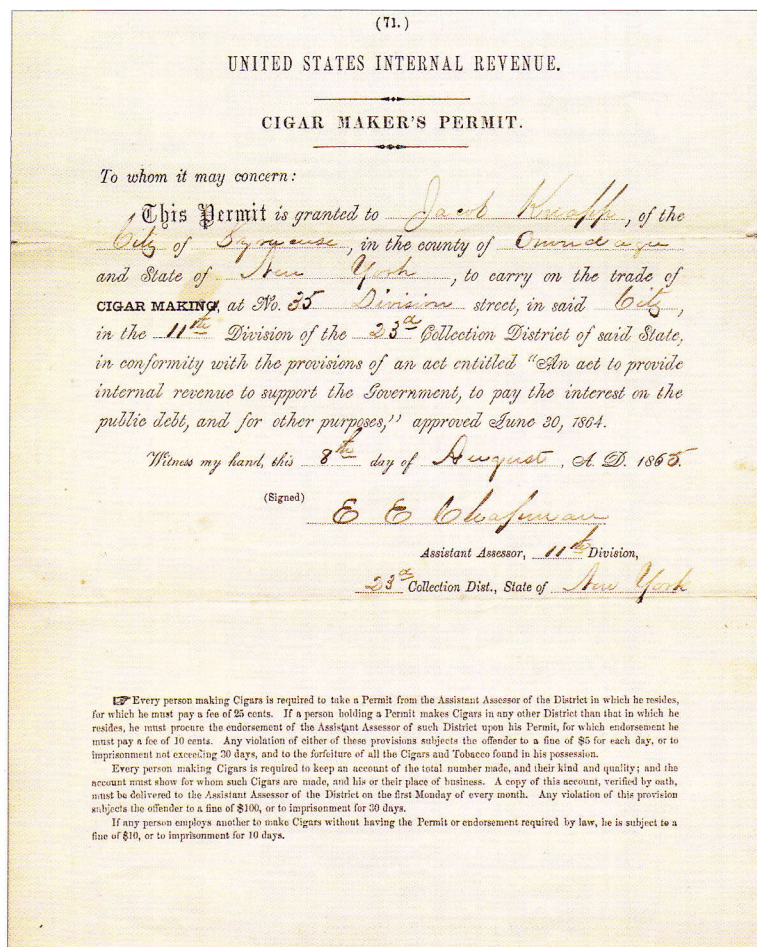 (71.)
UNITED STATES INTERNAL REVENUE.
CIGAR MAKER'S PERMIT.
To whom it may concern:
This Permit is granted to Jacob Knapp, of the
City of Syracuse, in the county of Onondaga
and State of New York, to carry on the trade of
CIGAR MAKING, at No. 35 Division street, in said City,
in the 11th Division of the 23d Collection District of said State,
in conformity with the provisions of an act entitled "An act to provide
internal revenue to support the Government, to pay the interest on the
public debt, and for other purposes," approved June 30, 1864.
Witness my hand, this 8th day of August, A. D. 1865.
(Signed)
E E Chapman
Assistant Assessor, 11th Division,
23d Collection Dist., State of New York
☞ Every person making Cigars is required to take a Permit from the Assistant Assessor of the District in which he resides,
for which he must pay a fee of 25 cents. If a person holding a Permit makes Cigars in any other District than that in which he
resides, he must procure the endorsement of the Assistant Assessor of such District upon his Permit, for which endorsement he
must pay a fee of 10 cents. Any violation of either of these provisions subjects the offender to a fine of $5 for each day, or to
imprisonment not exceeding 30 days, and to the forfeiture of all the Cigars and Tobacco found in his possession.
Every person making Cigars is required to keep an account of the total number made, and their kind and quality; and the
account must show for whom such Cigars are made, and his or their place of business. A copy of this account, verified by oath,
must be delivered to the Assistant Assessor of the District on the first Monday of every month. Any violation of this provision
subjects the offender to a fine of $100, or to imprisonment for 30 days.
If any person employs another to make Cigars without having the Permit or endorsement required by law, he is subject to a
fine of $10, or to imprisonment for 10 days.